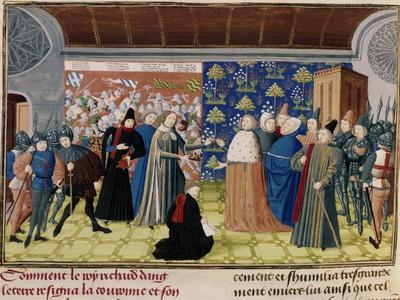 Comment le roy richard dang
leterre resigna la couronne et son
cement et shumilia tresgrande
ment envers lui ainsi que cel